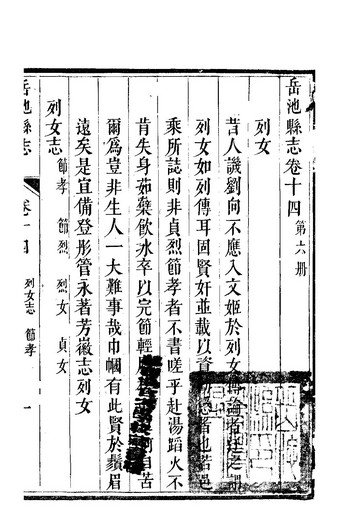 岳池縣志卷十四 第六册
列女
昔人譏劉向不應入文姬於列女傳論者
列女如列傳耳固賢奸並載以資
乘所誌則非貞烈節孝者不書嗟乎赴湯蹈火不
肯失身茹蘗飲水卒以完節輕自苦
爾為豈非生人一大難事哉巾幗有此賢於鬚眉
遠矣是宜備登彤管永著芳徽志列女
列女志 節孝 節烈 烈女 貞女
岳池縣志 卷十四 列女志 節孝 一